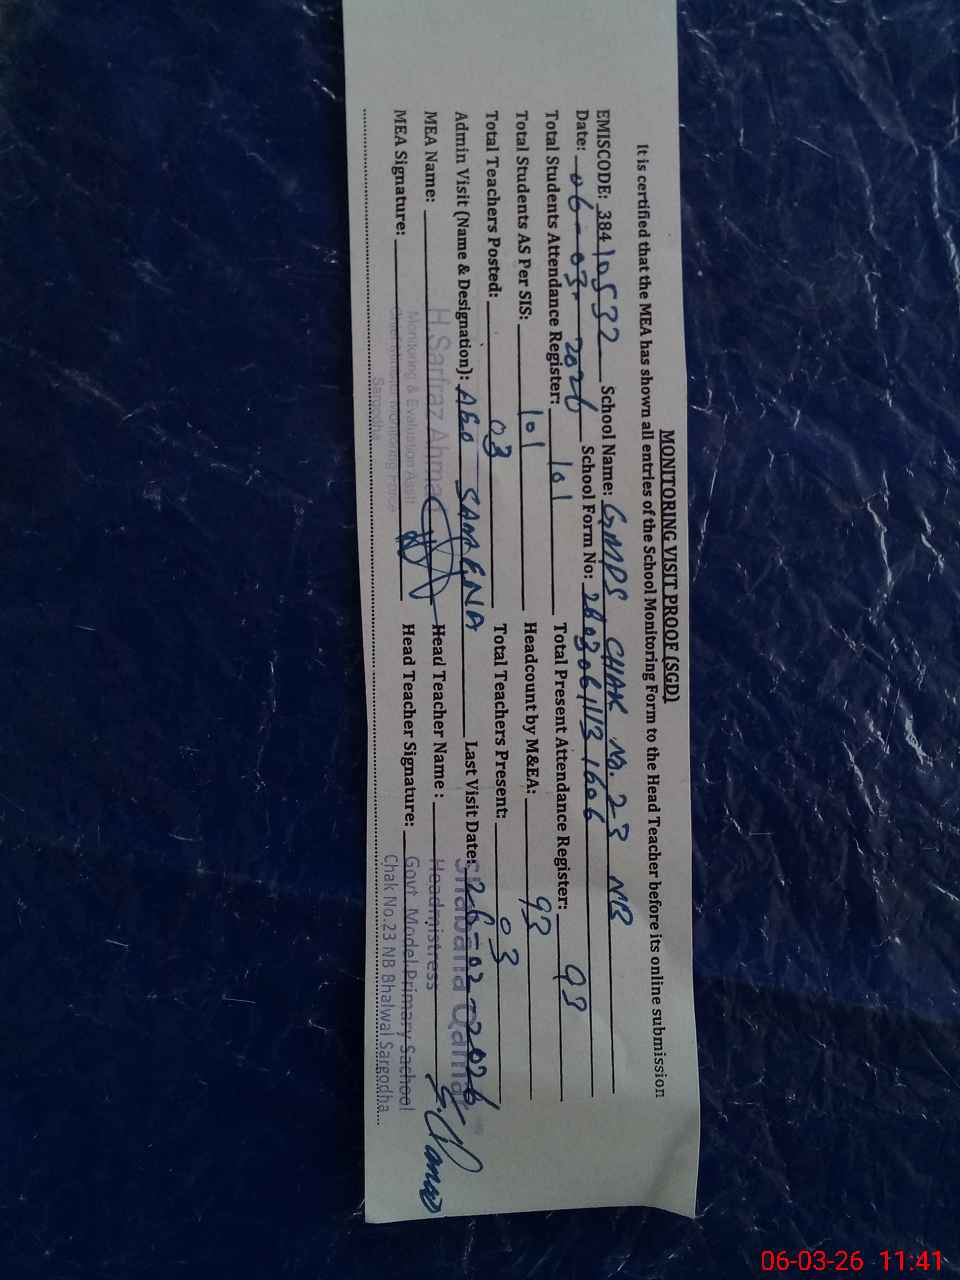 MONITORING VISIT PROOF (SGD)
It is certified that the MEA has shown all entries of the School Monitoring Form to the Head Teacher before its online submission
EMISCODE: 38410532 School Name: GMPS CHAK No. 23 NB
Date: 06-03-2026 School Form No:
Total Students Attendance Register: 101 Total Present Attendance Register: 93
Total Students AS Per SIS: 101 Headcount by M&EA: 93
Total Teachers Posted: 03 Total Teachers Present: 03
Admin Visit (Name & Designation): AEO SAMEENA Last Visit Date: 26-02-2026
MEA Name: H.Sarfraz Ahmad Head Teacher Name :
Monitoring & Evaluation Asstt
MEA Signature: Head Teacher Signature:
Chief Minister Monitoring Force
Sargodha
Shabana
Headmistress
Govt. Model Primary Sachool
Chak No.23 NB Bhalwal Sargodha
06-03-26 11:41